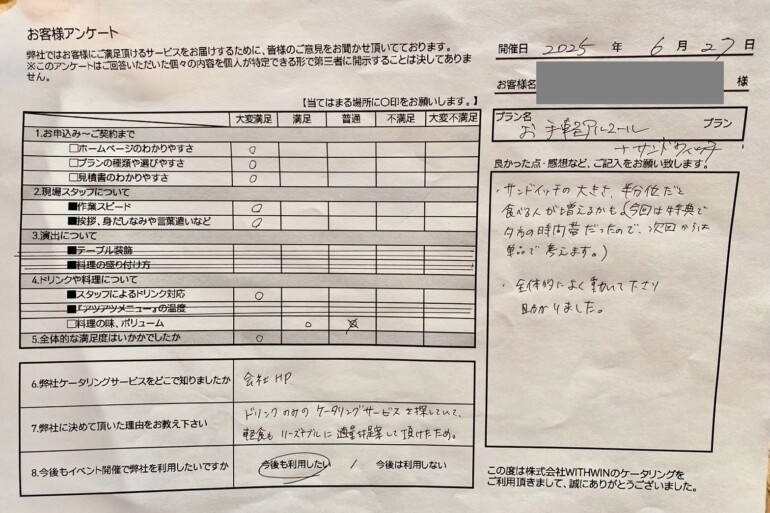 お客様アンケート
弊社ではお客様にご満足頂けるサービスをお届けするために、皆様のご意見をお聞かせ頂いております。
※このアンケートはご回答いただいた個々の内容を個人が特定できる形で第三者に開示することは決してありま
せん。
開催日 2025 年 6 月 27 日
お客様名 様
【当てはまる場所に〇印をお願いします。】
大変満足 満足 普通 不満足 大変不満足
1.お申込み～ご契約まで
□ホームページのわかりやすさ ○
□プランの種類や選びやすさ ○
□見積書のわかりやすさ ○
2.現場スタッフについて
■作業スピード ○
■挨拶、身だしなみや言葉遣いなど ○
3.演出について
■テーブル装飾
■料理の盛り付け方
4.ドリンクや料理について
■スタッフによるドリンク対応 ○
■『アツアツメニュー』の温度
□料理の味、ボリューム ○
5.全体的な満足度はいかがでしたか ○
6.弊社ケータリングサービスをどこで知りましたか 会社HP
7.弊社に決めて頂いた理由をお教え下さい ドリンクのみのケータリングサービスを探していて、
軽食もリーズナブルに適量を提案して頂けたため。
8.今後もイベント開催で弊社を利用したいですか 今後も利用したい / 今後は利用しない
プラン名
お手軽アルコール プラン
+サンドウィッチ
良かった点・感想など、ご記入をお願い致します。
・サンドイッチの大きさ、半分位だと
食べる人が増えるかも(今回は特典で
夕方の時間帯だったので、次回からは
単品で考えます。)
・全体的によく動いて下さり
助かりました。
この度は株式会社WITHWINのケータリングを
ご利用頂きまして、誠にありがとうございました。